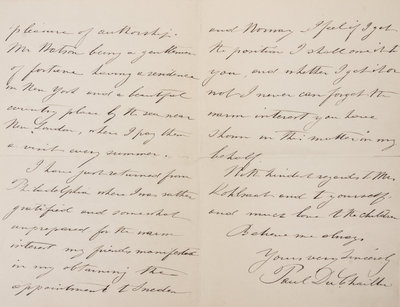 pleasure of authorship.
Mr Watson being a gentleman
of fortune having a residence
in New York and a beautiful
country place by the sea near
New London, where I pay them
a visit every summer.
I have just returned from
Philadelphia where I was rather
gratified and somewhat
unprepared for the warm
interest my friends manifested
in my obtaining the
appointment to Sweden
and Norway I feel if I get
the position I shall owe it to
you, and whether I get it or
not I never can forget the
warm interest you have
shown in this matter in my
behalf
With kindest regards to Mrs
Kohlsaat and to yourself
and much love to the children
Believe me always
Yours very sincerely
Paul Du Chaillu